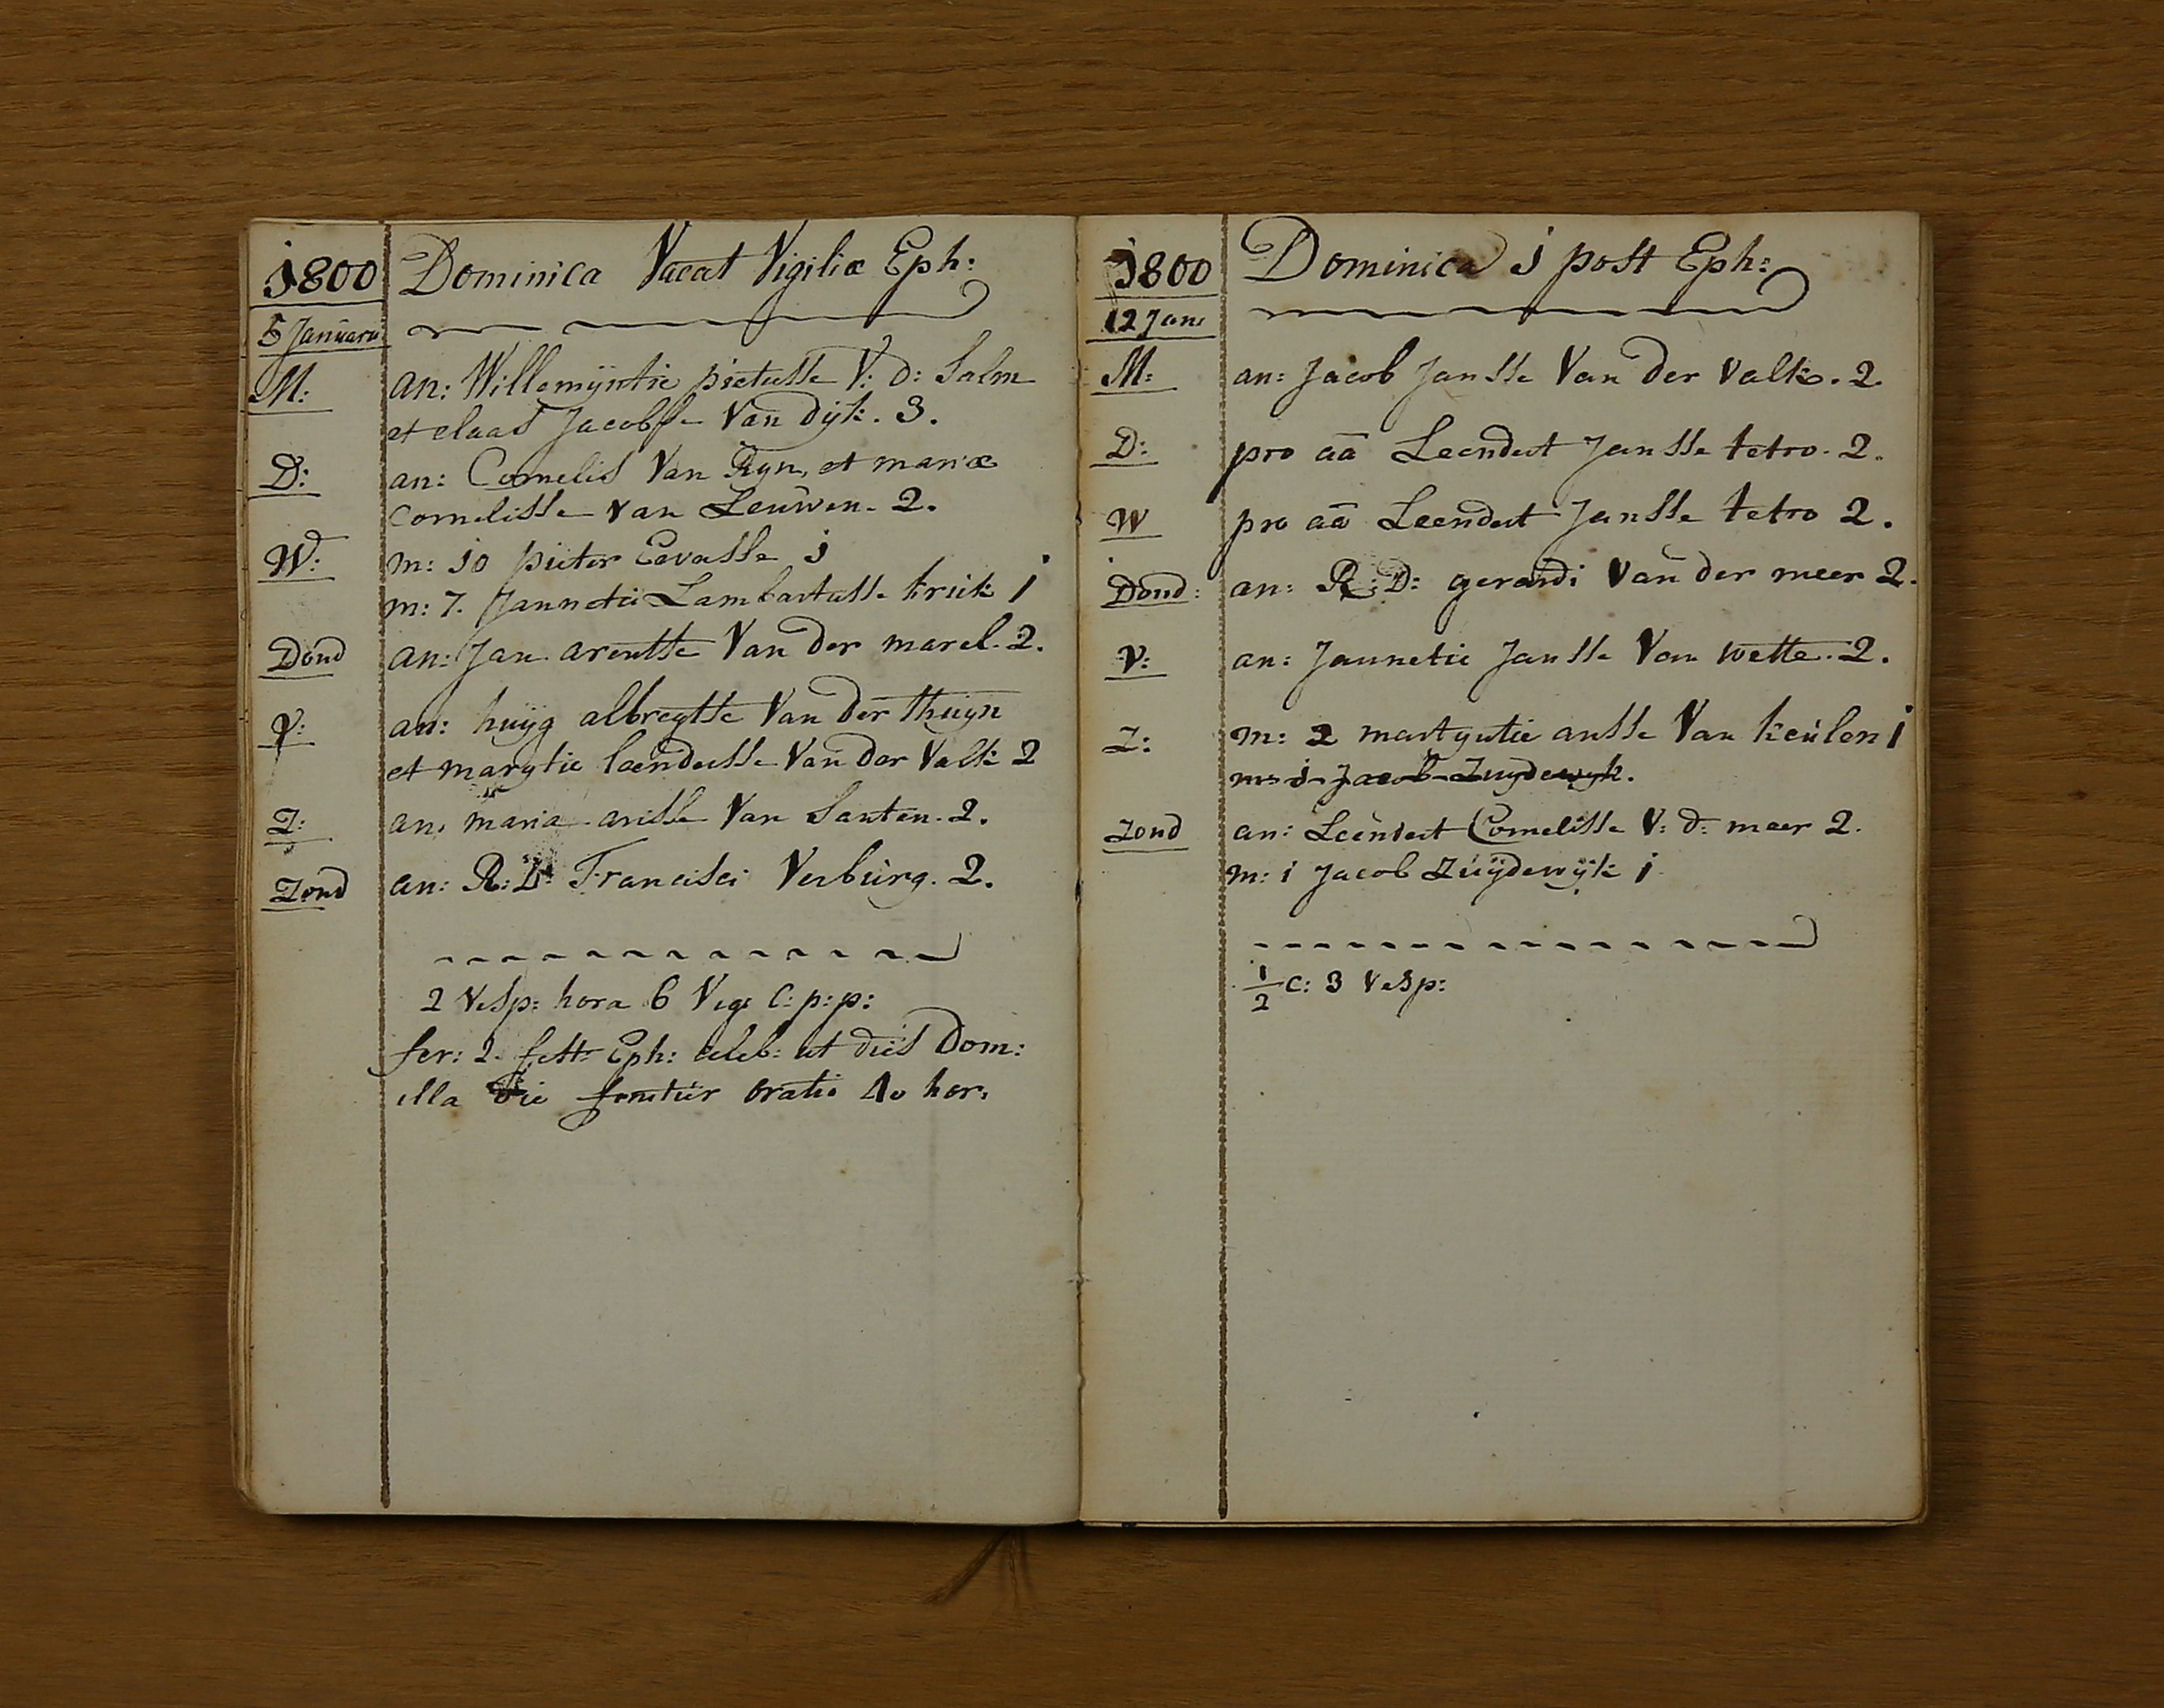 1800 Dominica Vacat Vigiliæ Eph:
5 Januarii
M: an: Willemÿntie pietersse V: d: Salm
et claas Jacobsse Van dÿk. 3.
D: an: Cornelis Van Rÿn, et mariæ
Cornelisse van Leuwen. 2.
W: m: 10 pieter Eevasse i
m: 7. Jannetie Lambartusse krick 1
Dond an: Jan arentse Van der marel. 2.
V: an: huÿg albregtse Van der thuÿn
et marytie leendertsse Van der Valk 2
Z: an, maria arisse Van Santen. 2.
Zond an: R: D: Francisci Verburg. 2.
2 Vesp: hora 6 Vig: C: p: p:
fer: 2. festr Eph: celeb: ut dies Dom:
illa die oratio 40 hor,
1800 Dominica i post Eph:
12 Jan:
M: an: Jacob Jansse Van der Valk. 2.
D: pro aā Leendert Jansse tetro. 2.
W pro aā Leendert Jansse tetro 2.
Dond: an: R: D: gerardi Van der meer 2.
V: an: Jannetie Jansse Van wette. 2.
Z: m: 2 martyntie ansse Van keulen i
m: i Jacob Zuydewyk.
Zond an: Leendert Cornelisse V: d: meer 2.
m: i Jacob Zuÿdewÿk i
1/2 C: 3 Vesp: